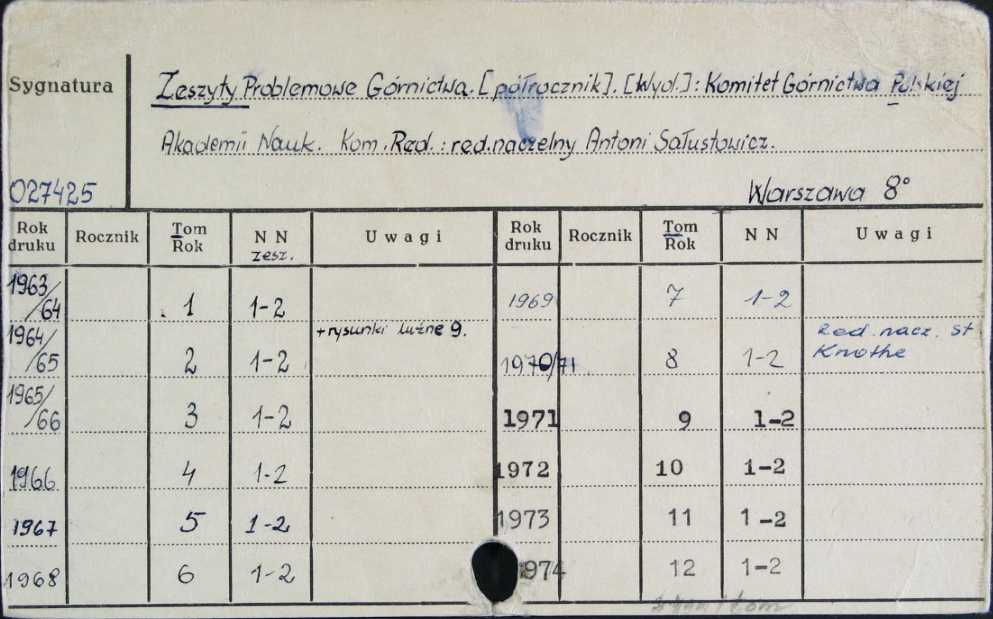 Sygnatura
Zeszyty Problemowe Górnictwa. [półrocznik]. [Wyd.]: Komitet Górnictwa Polskiej
Akademii Nauk. Kom. Red.: red. naczelny Antoni Sałustowicz.
027425
Warszawa 8°
Rok druku Rocznik Tom Rok N N zesz. Uwagi Rok druku Rocznik Tom Rok N N Uwagi
1963/64 1 1-2 1969 7 1-2
1964/65 2 1-2 + rysunki luźne 9. 1970/71 8 1-2 Red. nacz. St Knothe
1965/66 3 1-2 1971 9 1-2
1966 4 1-2 1972 10 1-2
1967 5 1-2 1973 11 1-2
1968 6 1-2 1974 12 1-2